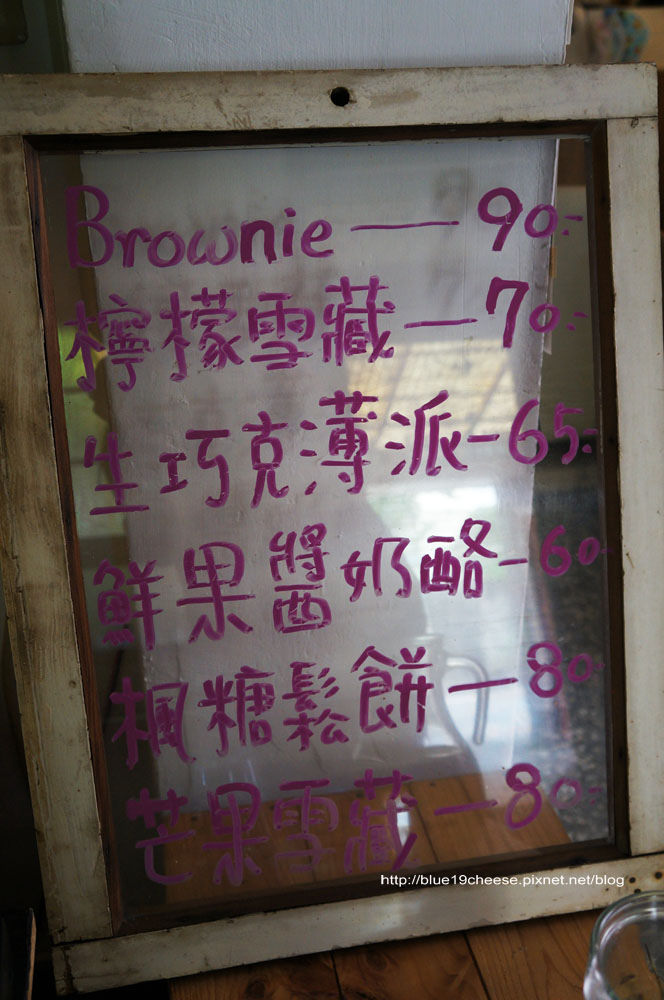 Brownie — 90.-
檸檬雪藏 — 70.-
生巧克薄派 - 65.-
鮮果醬奶酪 - 60.-
楓糖鬆餅 — 80.-
芒果雪藏 — 80.-
http://blue19cheese.pixnet.net/blog